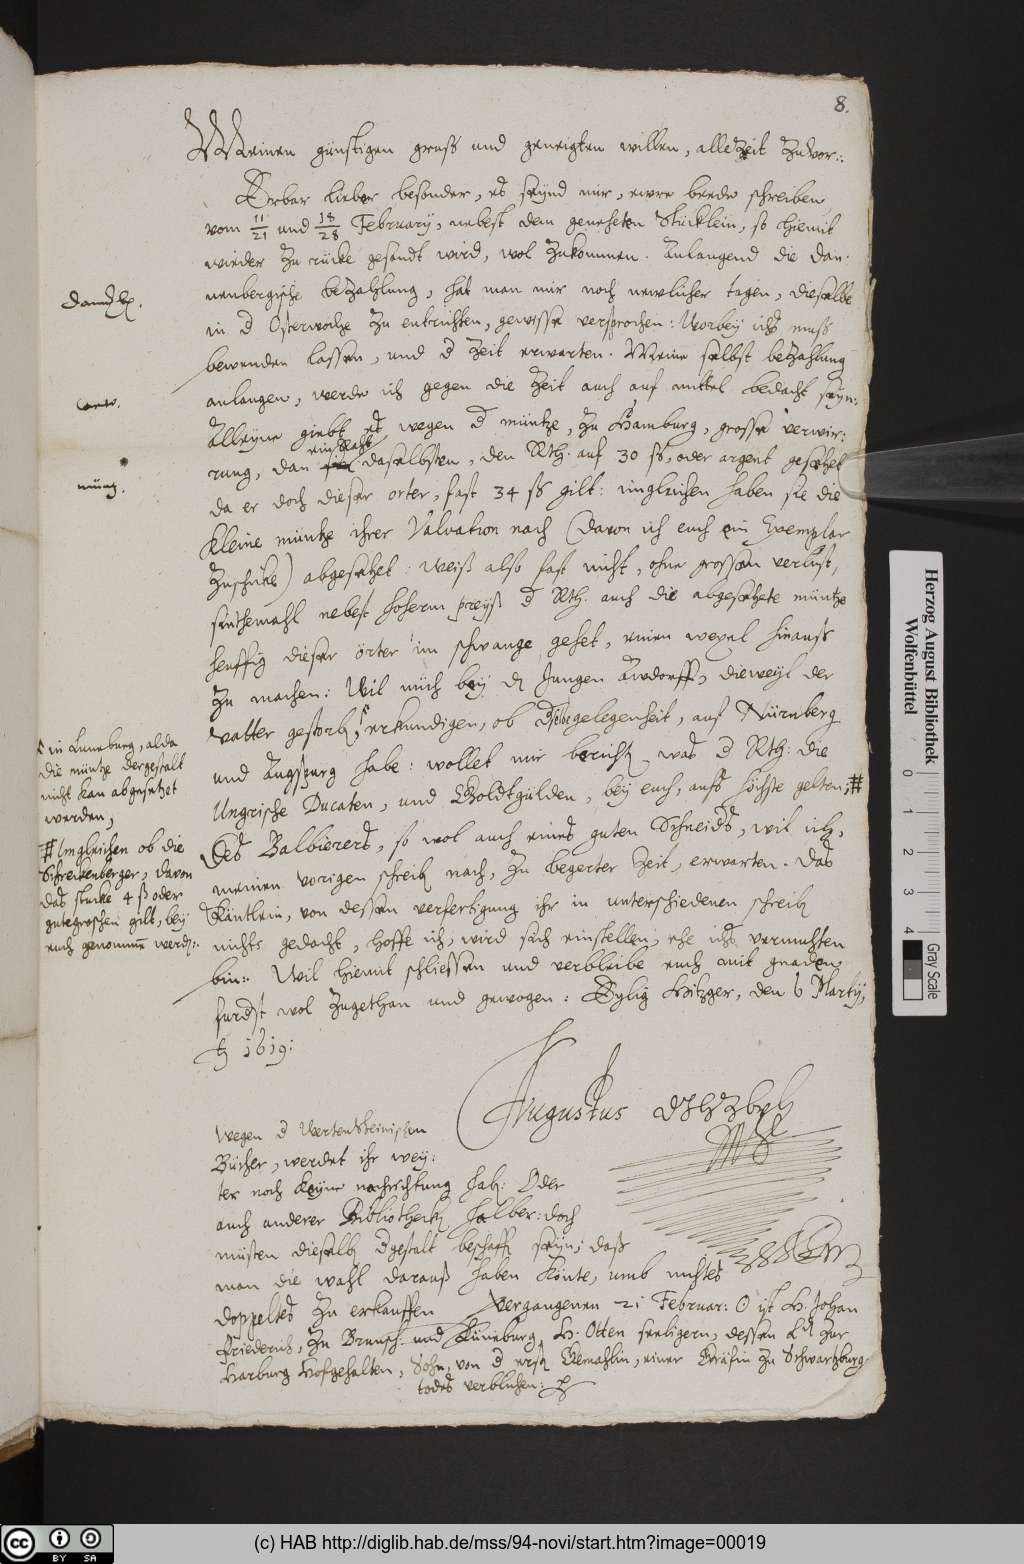 8.
Meinen günstigen gruß und geneigten willen, allezeit zuvor.:
Erbar lieber besonder, es seynd mir, ewre beede schreiben
vom 11/21 und 18/28 February, nebest dem geneheten Stücklein, so hiemit
wieder zu rücke gesandt wird, wol zukommen. Anlangend die Dan-
nenbergische bezahlung, hat man mir noch newlicher tagen, dieselbe
in d Osterwoche zu entrichten, gewisse versprochen: Worbey ichs muß
bewenden lassen, und d zeit erwarten. Meine selbst bezahlung
anlangen, werde ich gegen die Zeit auch auf mittel bedacht seyn:
Alleyne giebt es wegen d müntze, zu Hamburg, grosse verwir:
rung, dan einsthalß daselbsten, den Rth. auf 30 ß, oder argent gesetzet
da er doch dieser orter, fast 34 ß gilt: ingleichen haben sie die
Kleine müntze ihrer Valvation nach (davon ich euch ein Exemplar
zuschicke) abgesetzet: weiß also fast nicht, ohne grossen verlust,
sintemahl nebest hoherm preyß d Rth. auch die abgesetzete müntze
heuffig dieser örter im schwange gehet, einen wexel hinauß
zu machen: Wil mich bey dz Jungen Axdorff, dieweyl der
vatter gestorbz, erkundigen, ob dselbe gelegenheit, auf Nürnberg
und Augspurg habe: wollet mir berichtz was d Rth: die
Ungrische Ducaten, und Goldtgülden, bey euch, aufs höchste gelten; #
Des Balbierers, so wol auch eines guten Schneids, wil ich,
meinen vorigen schreibz nach, zu begerter Zeit, erwarten. Das
Küntlein, von dessen verfertigung ihr in unterschiedenen schreibz
nichts gedacht, hoffe ich, wird sich einstellen, ehe ichs vermuhten
bin: Wil hiemit schliessen und verbleibe euch mit gnaden
furdst wol zugethan und gewogen: Eylig Hitzger, den 6 Martij,
1619:
Augustus
müntz.
in Luneburg, alda
die müntze dergestalt
nicht kan abgesetzet
werden,
# Imgleichen ob die
Schreckenberger, davon
das stucke 4 ß oder
gutegroschen gilt, bey
euch genommen werdz:
Wegen d Wertensteinischen
Bücher, werdet ihr wey:
ter noch keyne nachrichtung habz: Oder
auch anderer Bibliotheckz halber: doch
müsten dieselbz dgestalt beschaffz seyn; daß
man die wahl darauß haben könte, umb nichtes
doppeltes zu erkauffen Vergangenen 21 Februar: ☉ ist H. Johan
Friederich, zu Braunsch: und Lüneburg, H. Otten seeligern, dessen L zur
Harburg Hofgehalten, Sohn, von d ersz Gemahlin, einer Gräfin zu Schwartzburg
todes verblichen:
Herzog August Bibliothek
Wolfenbüttel
0 1 2 3 4
Gray Scale
cc BY SA
(c) HAB http://diglib.hab.de/mss/94-novi/start.htm?image=00019